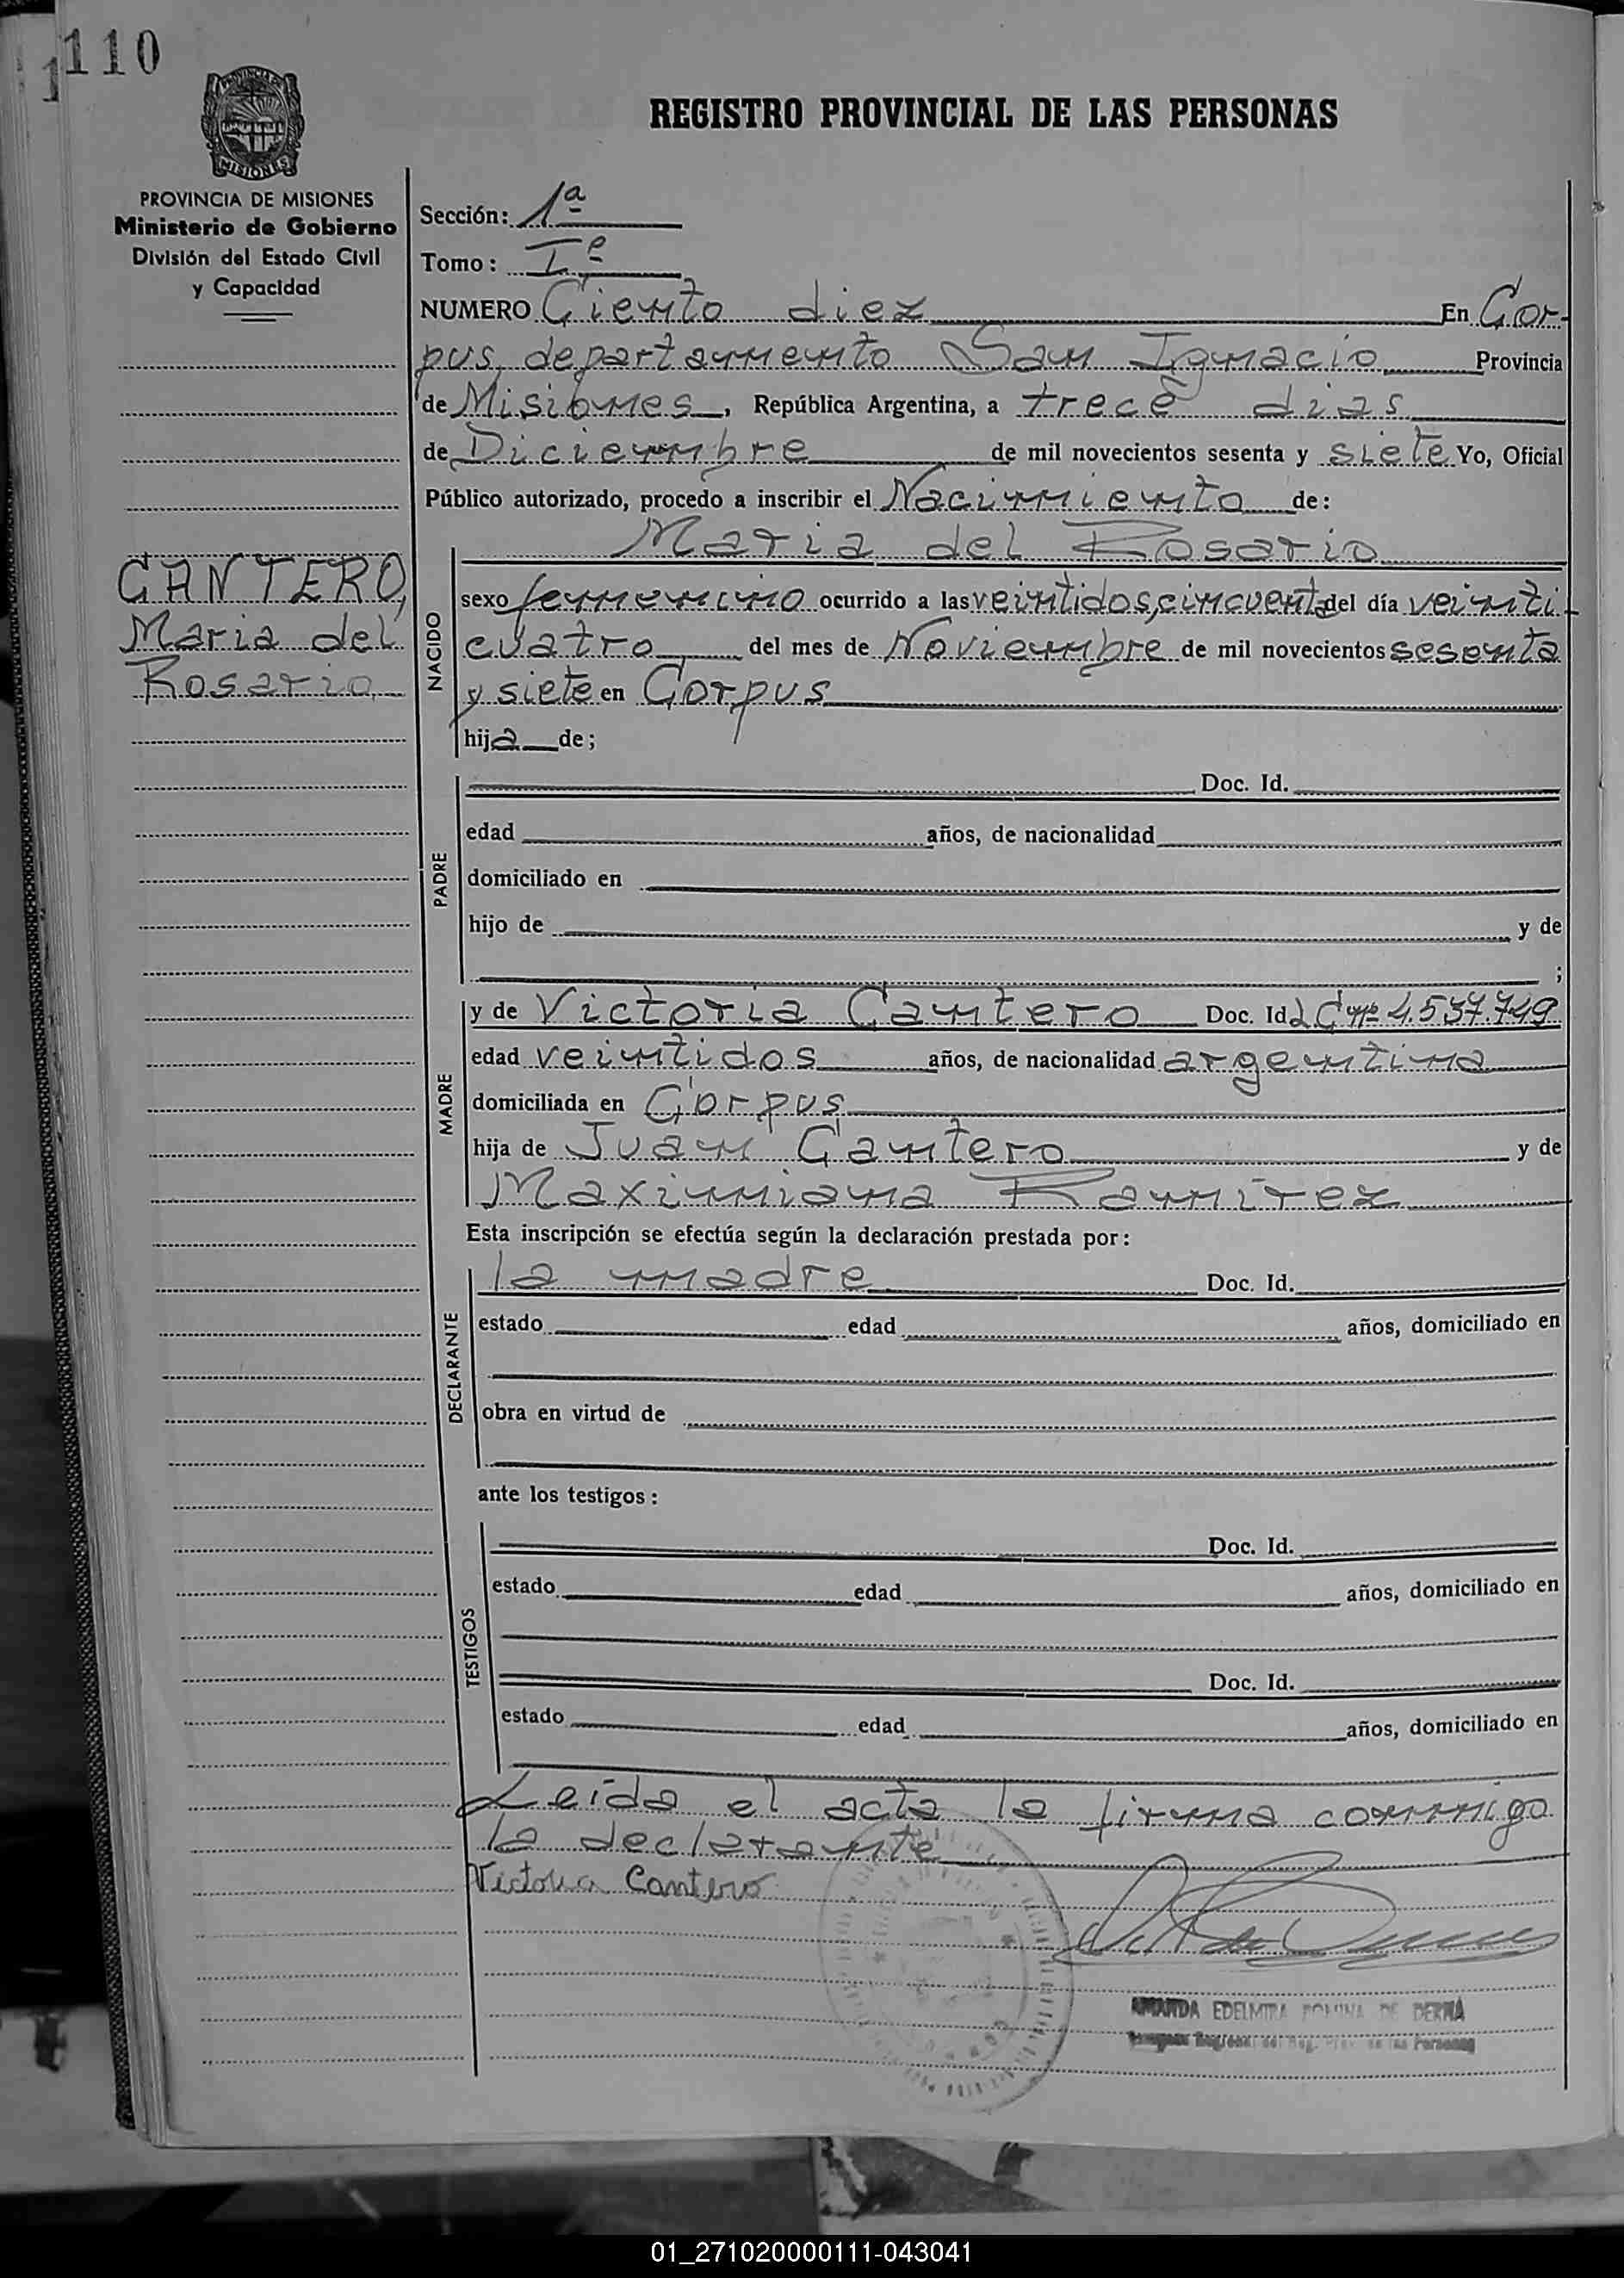 110
REGISTRO PROVINCIAL DE LAS PERSONAS
PROVINCIA DE MISIONES
MISIONES
PROVINCIA DE MISIONES
Ministerio de Gobierno
División del Estado Civil
y Capacidad
Sección: 1ª
Tomo: Iº
NUMERO Ciento diez En Cor-
pus, departamento San Ignacio Provincia
de Misiones, República Argentina, a trece dias
de Diciembre de mil novecientos sesenta y siete Yo, Oficial
Público autorizado, procedo a inscribir el Nacimiento de:
Maria del Rosario
CANTERO,
Maria del
Rosario
NACIDO
sexo femenino ocurrido a las veintidos, cincuenta del día veinti-
cuatro del mes de Noviembre de mil novecientos sesenta
y siete en Corpus
hija de;
PADRE
Doc. Id.
edad años, de nacionalidad
domiciliado en
hijo de y de
;
MADRE
y de Victoria Cantero Doc. Id L C nº 4.537.749
edad veintidos años, de nacionalidad argentina
domiciliada en Corpus
hija de Juan Cantero y de
Maximiana Ramirez
Esta inscripción se efectúa según la declaración prestada por:
DECLARANTE
la madre Doc. Id.
estado edad años, domiciliado en
obra en virtud de
ante los testigos:
TESTIGOS
Doc. Id.
estado edad años, domiciliado en
Doc. Id.
estado edad años, domiciliado en
Leida el acta la firma conmigo
la declarante
Victoria Cantero
AMANDA EDELMIRA DE
01_271020000111-043041